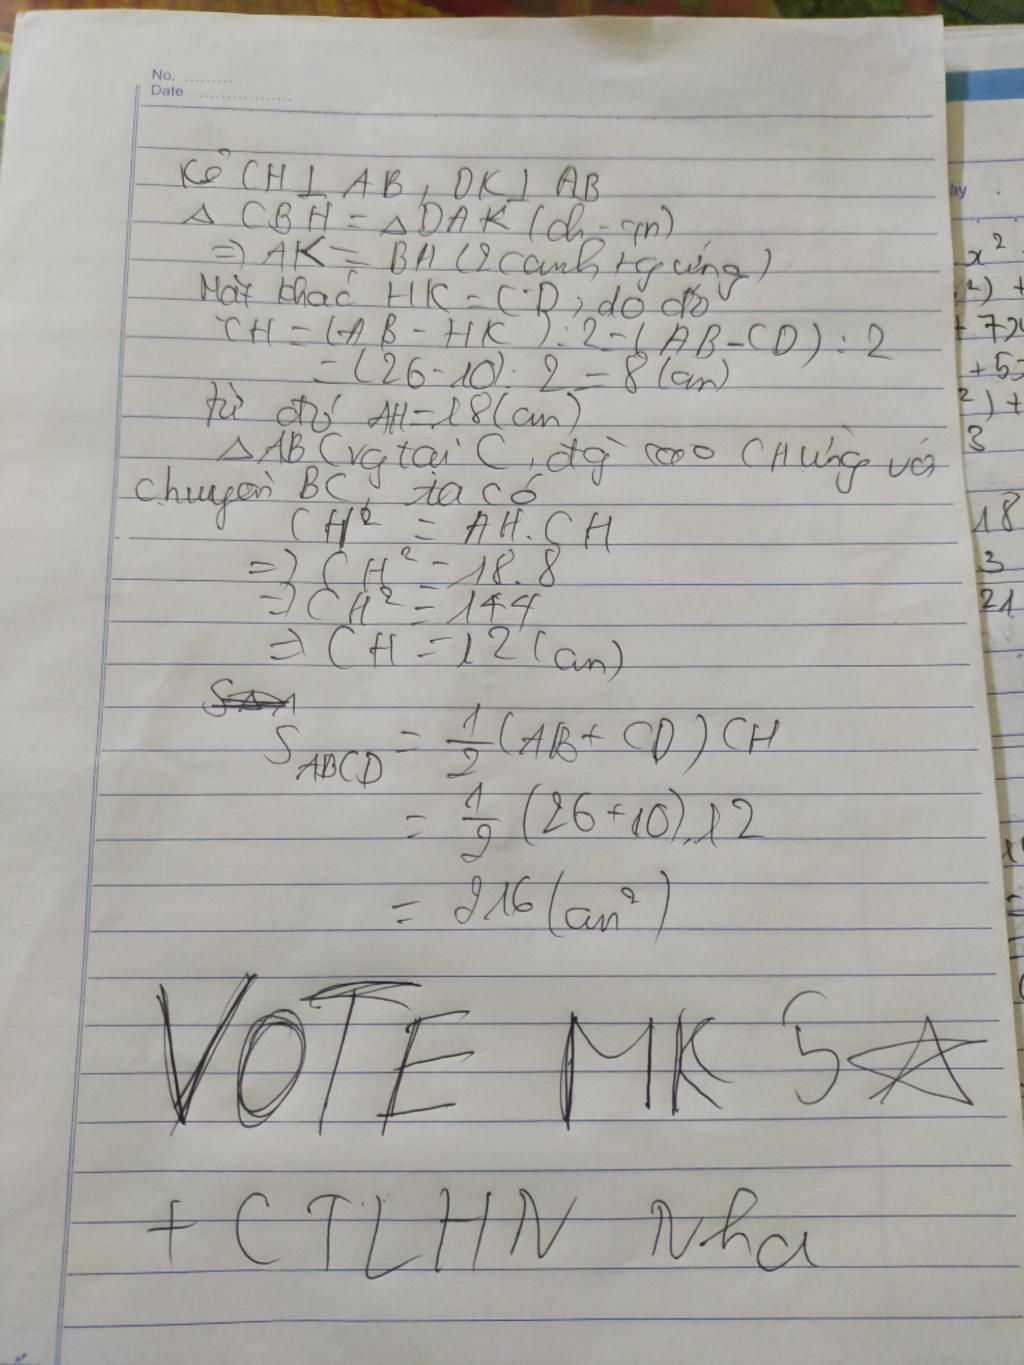 No. .........
Date ...................
Kẻ CH ⊥ AB, DK ⊥ AB
Δ CBH = Δ DAK (ch - gn)
=> AK = BH (2 cạnh tg ứng)
Mặt khác HK = CD, do đó
CH = (AB - HK) : 2 = (AB - CD) : 2
= (26 - 10) : 2 = 8 (cm)
từ đó AH = 18 (cm)
Δ ABC vg tại C, đg cao CH ứng với
chuyền BC, ta có
CH² = AH.CH
=> CH² = 18.8
=> CH² = 144
=> CH = 12 (cm)
S_ABCD = 1/2 (AB + CD) CH
= 1/2 (26 + 10).12
= 216 (cm²)
VOTE MK 5☆
+ CTLHN Nha
ày
x²
²) +
+ 53
²) +
3
18
3
21